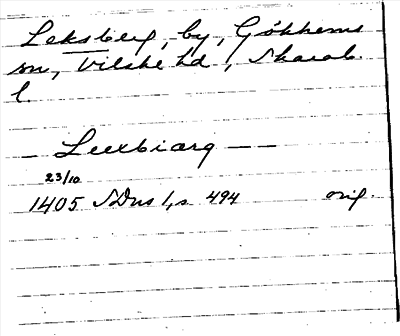 Leksberg, by, Gökhems
sn, Vilske hd, Skarab.
l.
— Leexbiarg —
23/10
1405 SDns 1, s. 494 orig.